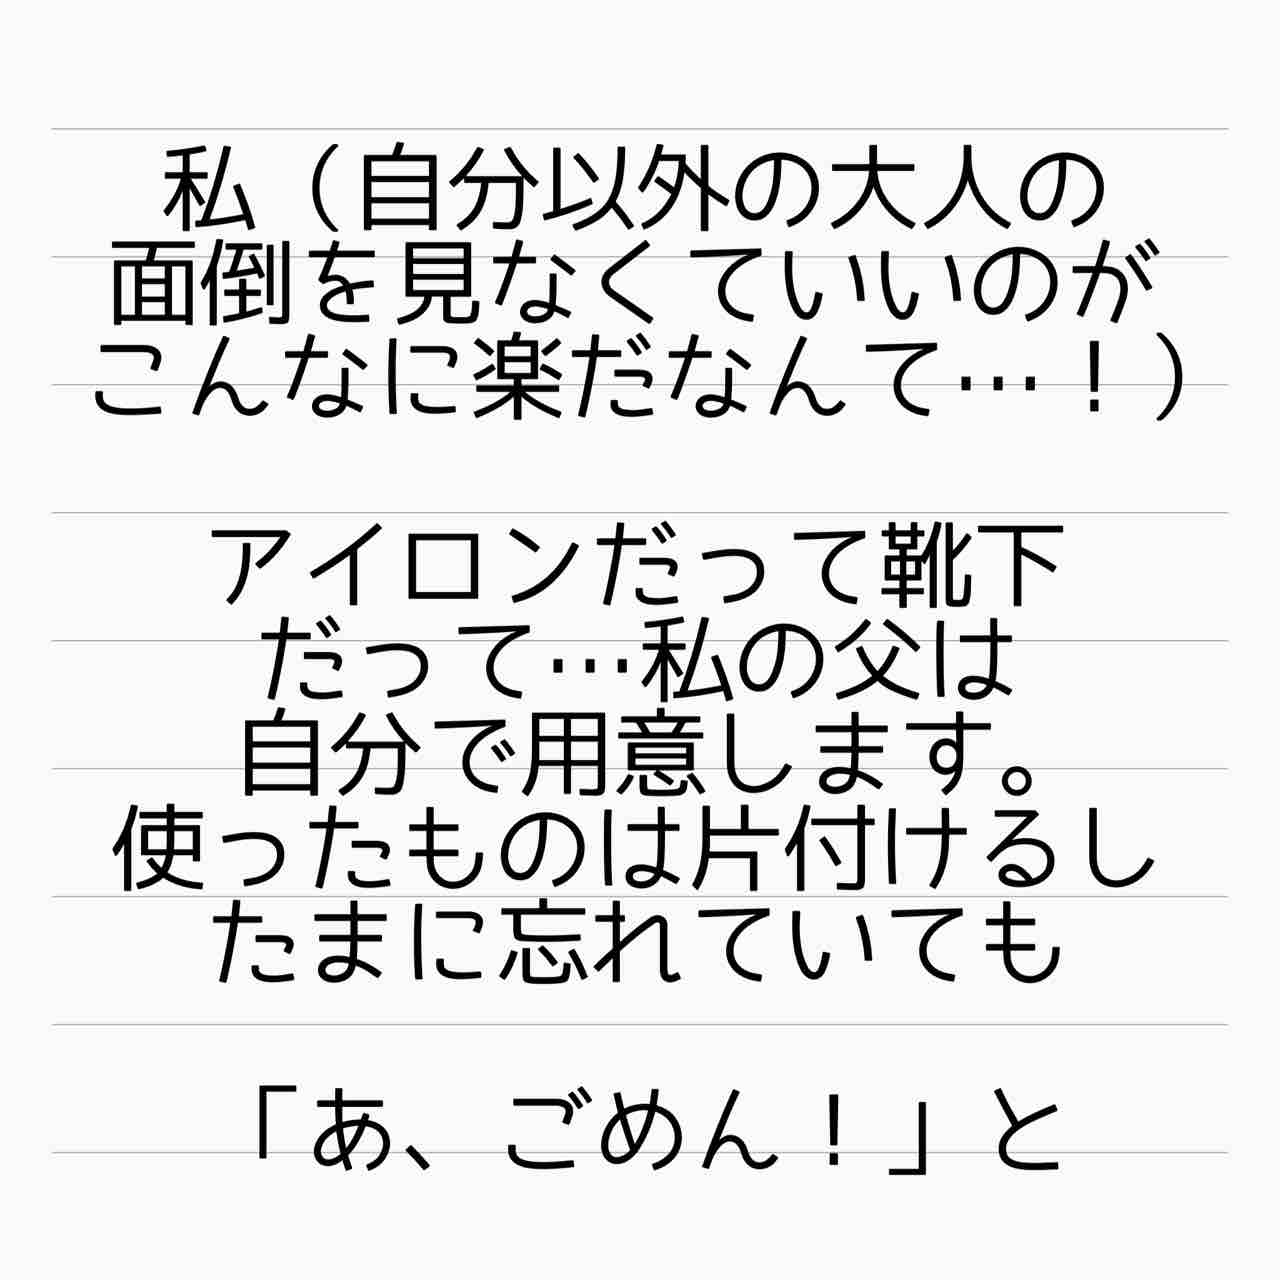 私（自分以外の大人の
面倒を見なくていいのが
こんなに楽だなんて…！）
アイロンだって靴下
だって…私の父は
自分で用意します。
使ったものは片付けるし
たまに忘れていても
「あ、ごめん！」と